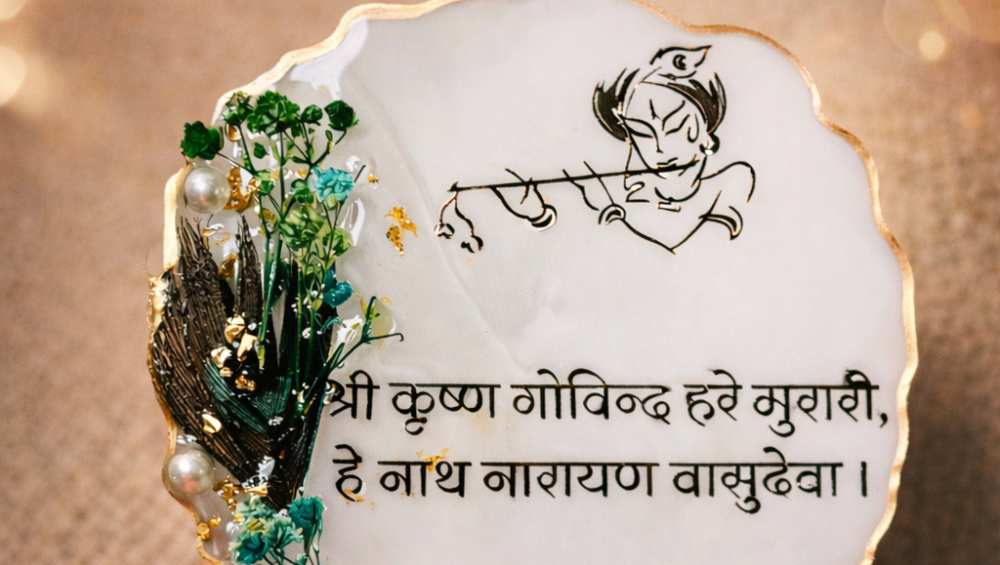 श्री कृष्ण गोविन्द हरे मुरारी,
हे नाथ नारायण वासुदेवा ।